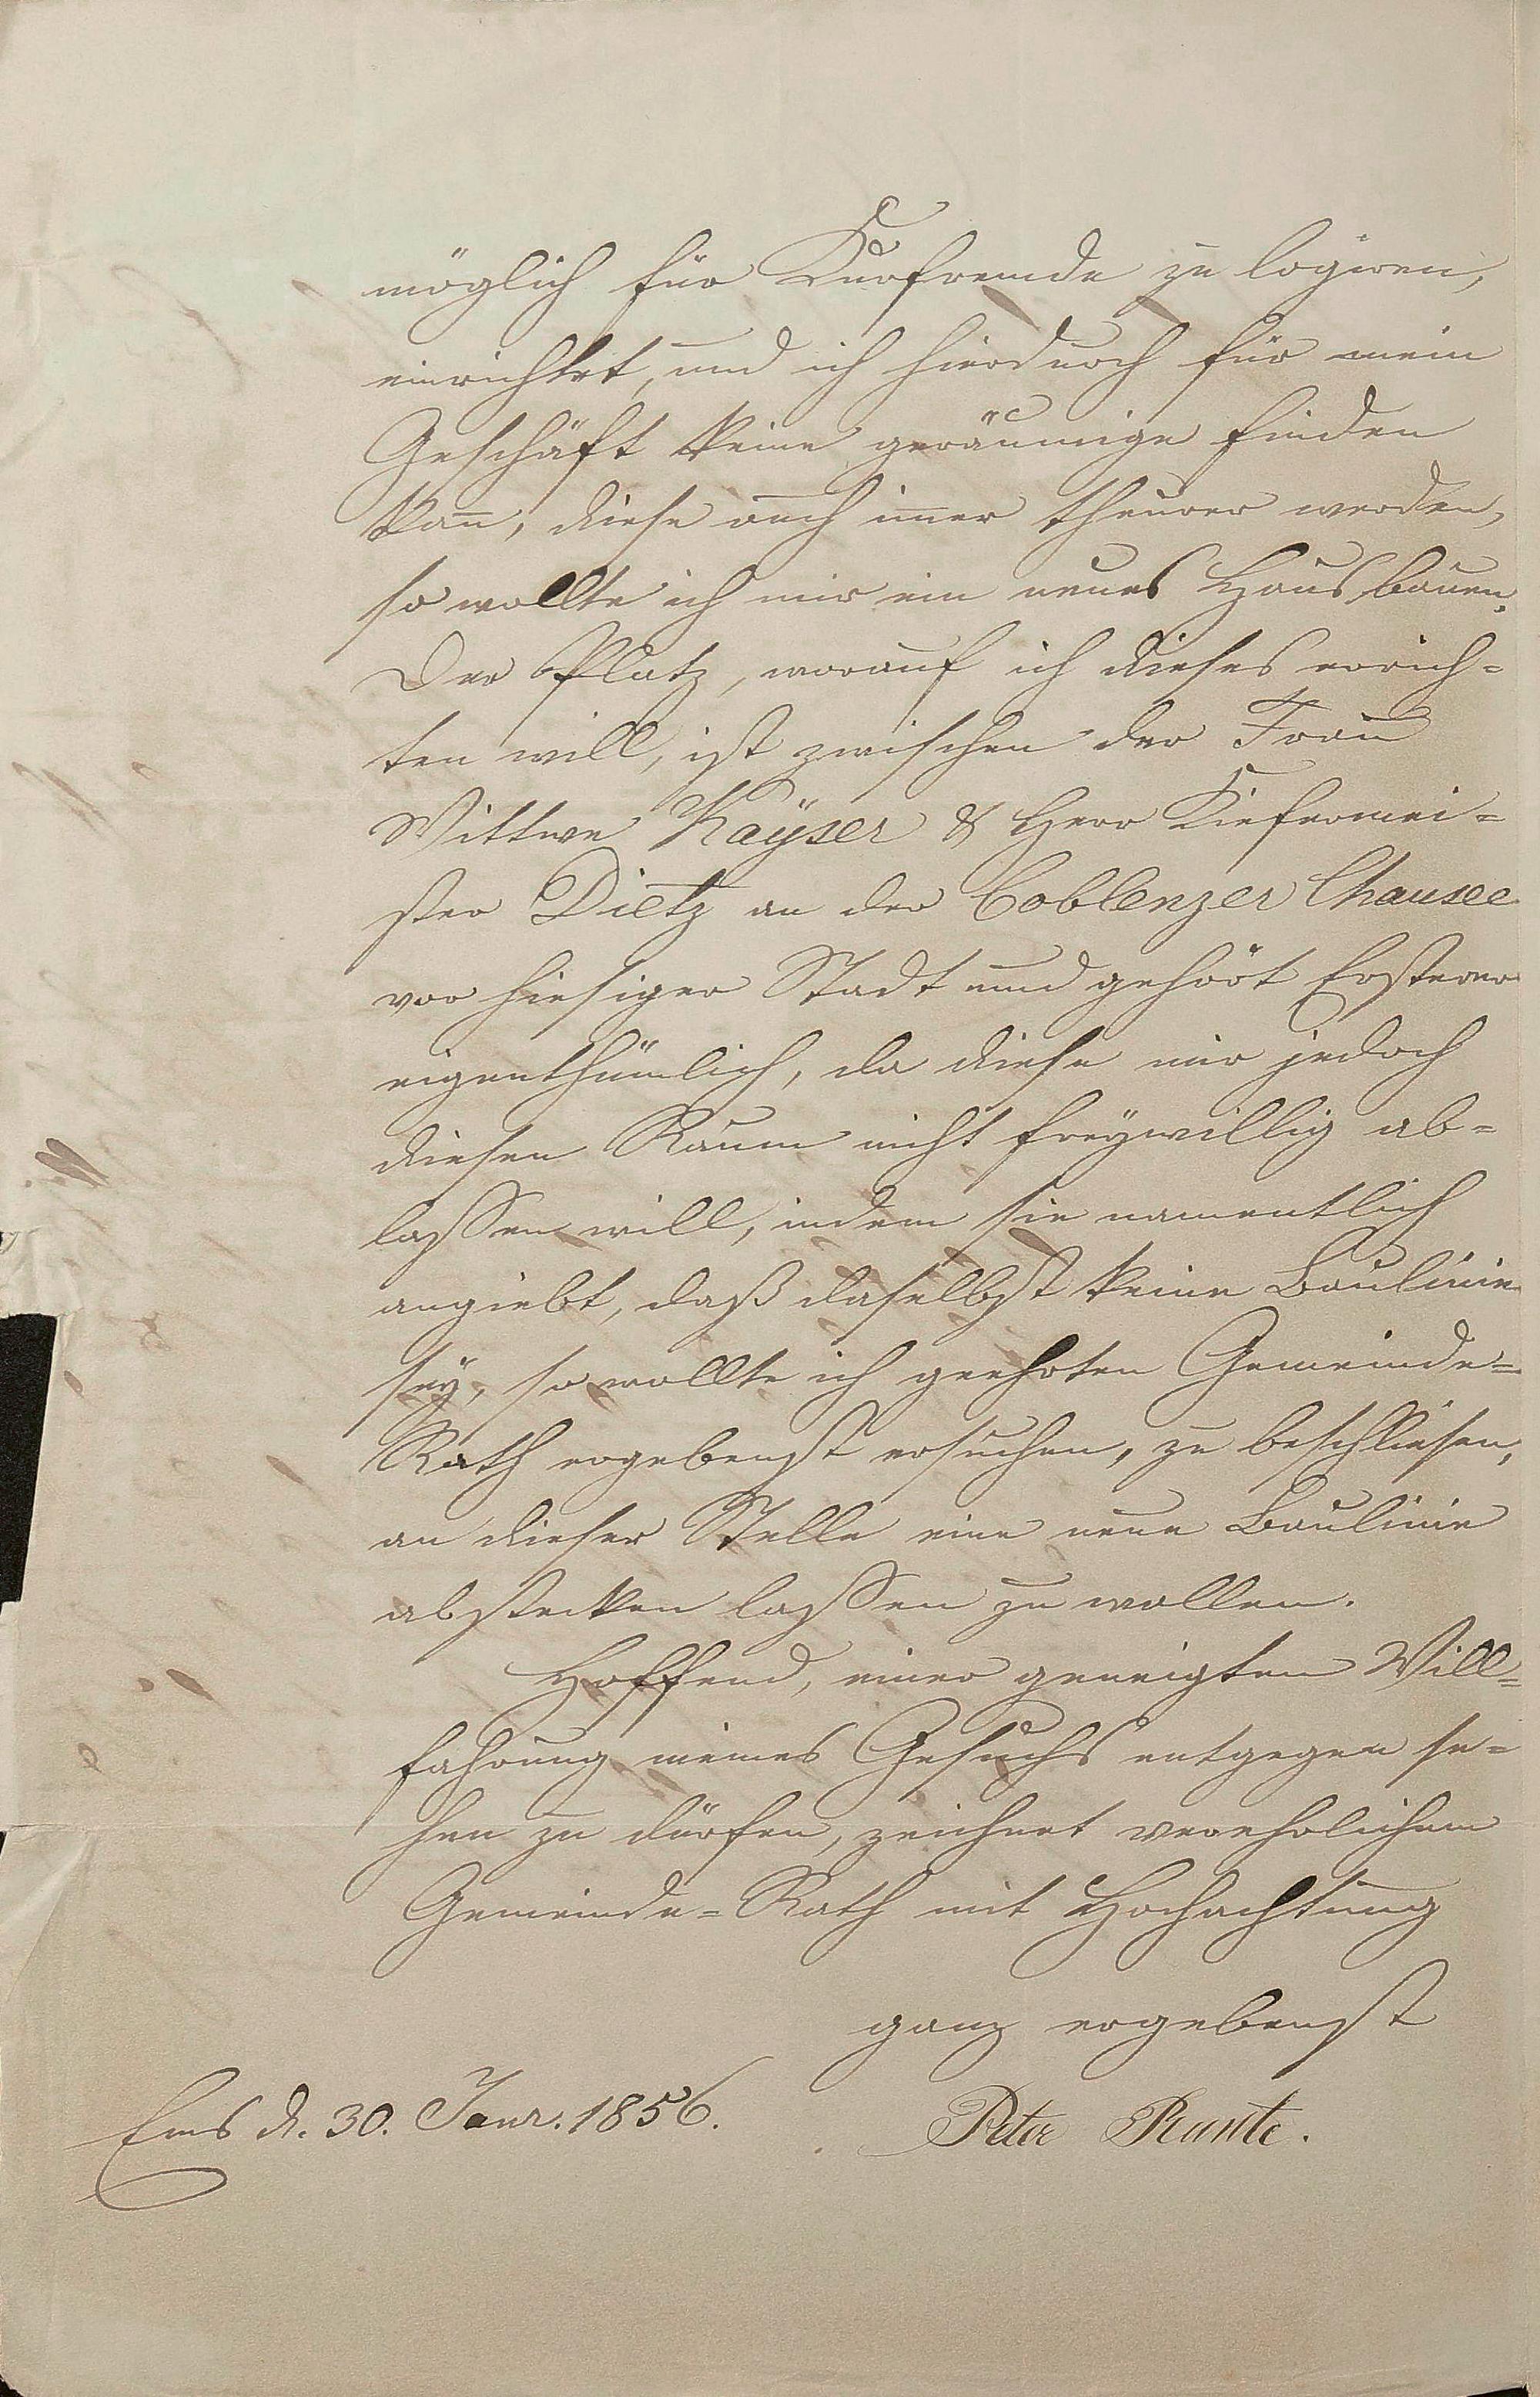 möglich für Kurfremde zu logiren,
einrichtet, und ich hierdurch für mein
Geschäft keine geräumige finden
kan̅, diese auch im̅er theurer werden,
so wollte ich mir ein neues Haus bauen.
Der Platz, worauf ich dieses errich-
ten will, ist zwischen der Frau
Wittwe Kaÿser & Herr Kiefermei-
ster Dietz an der Coblenzer Chausee
vor hiesiger Stadt und gehört Ersterer
eigenthümlich, da diese mir jedoch
diesen Raum nicht freÿwillig ab-
lassen will, indem sie namentlich
angiebt, daß daselbst keine Baulinie
seÿ, so wollte ich geehrten Gemeinde-
Rath ergebenst ersuchen, zu beschliesen,
an dieser Stelle eine neue Baulinie
abstecken lassen zu wollen.
Hoffend, einer geneigten Will-
fahrung meines Gesuchs entgegen se-
hen zu dürfen, zeichnet verehrlichem
Gemeinde-Rath mit Hochachtung
ganz ergebenst
Ems d. 30. Janr. 1856. Peter Runte.